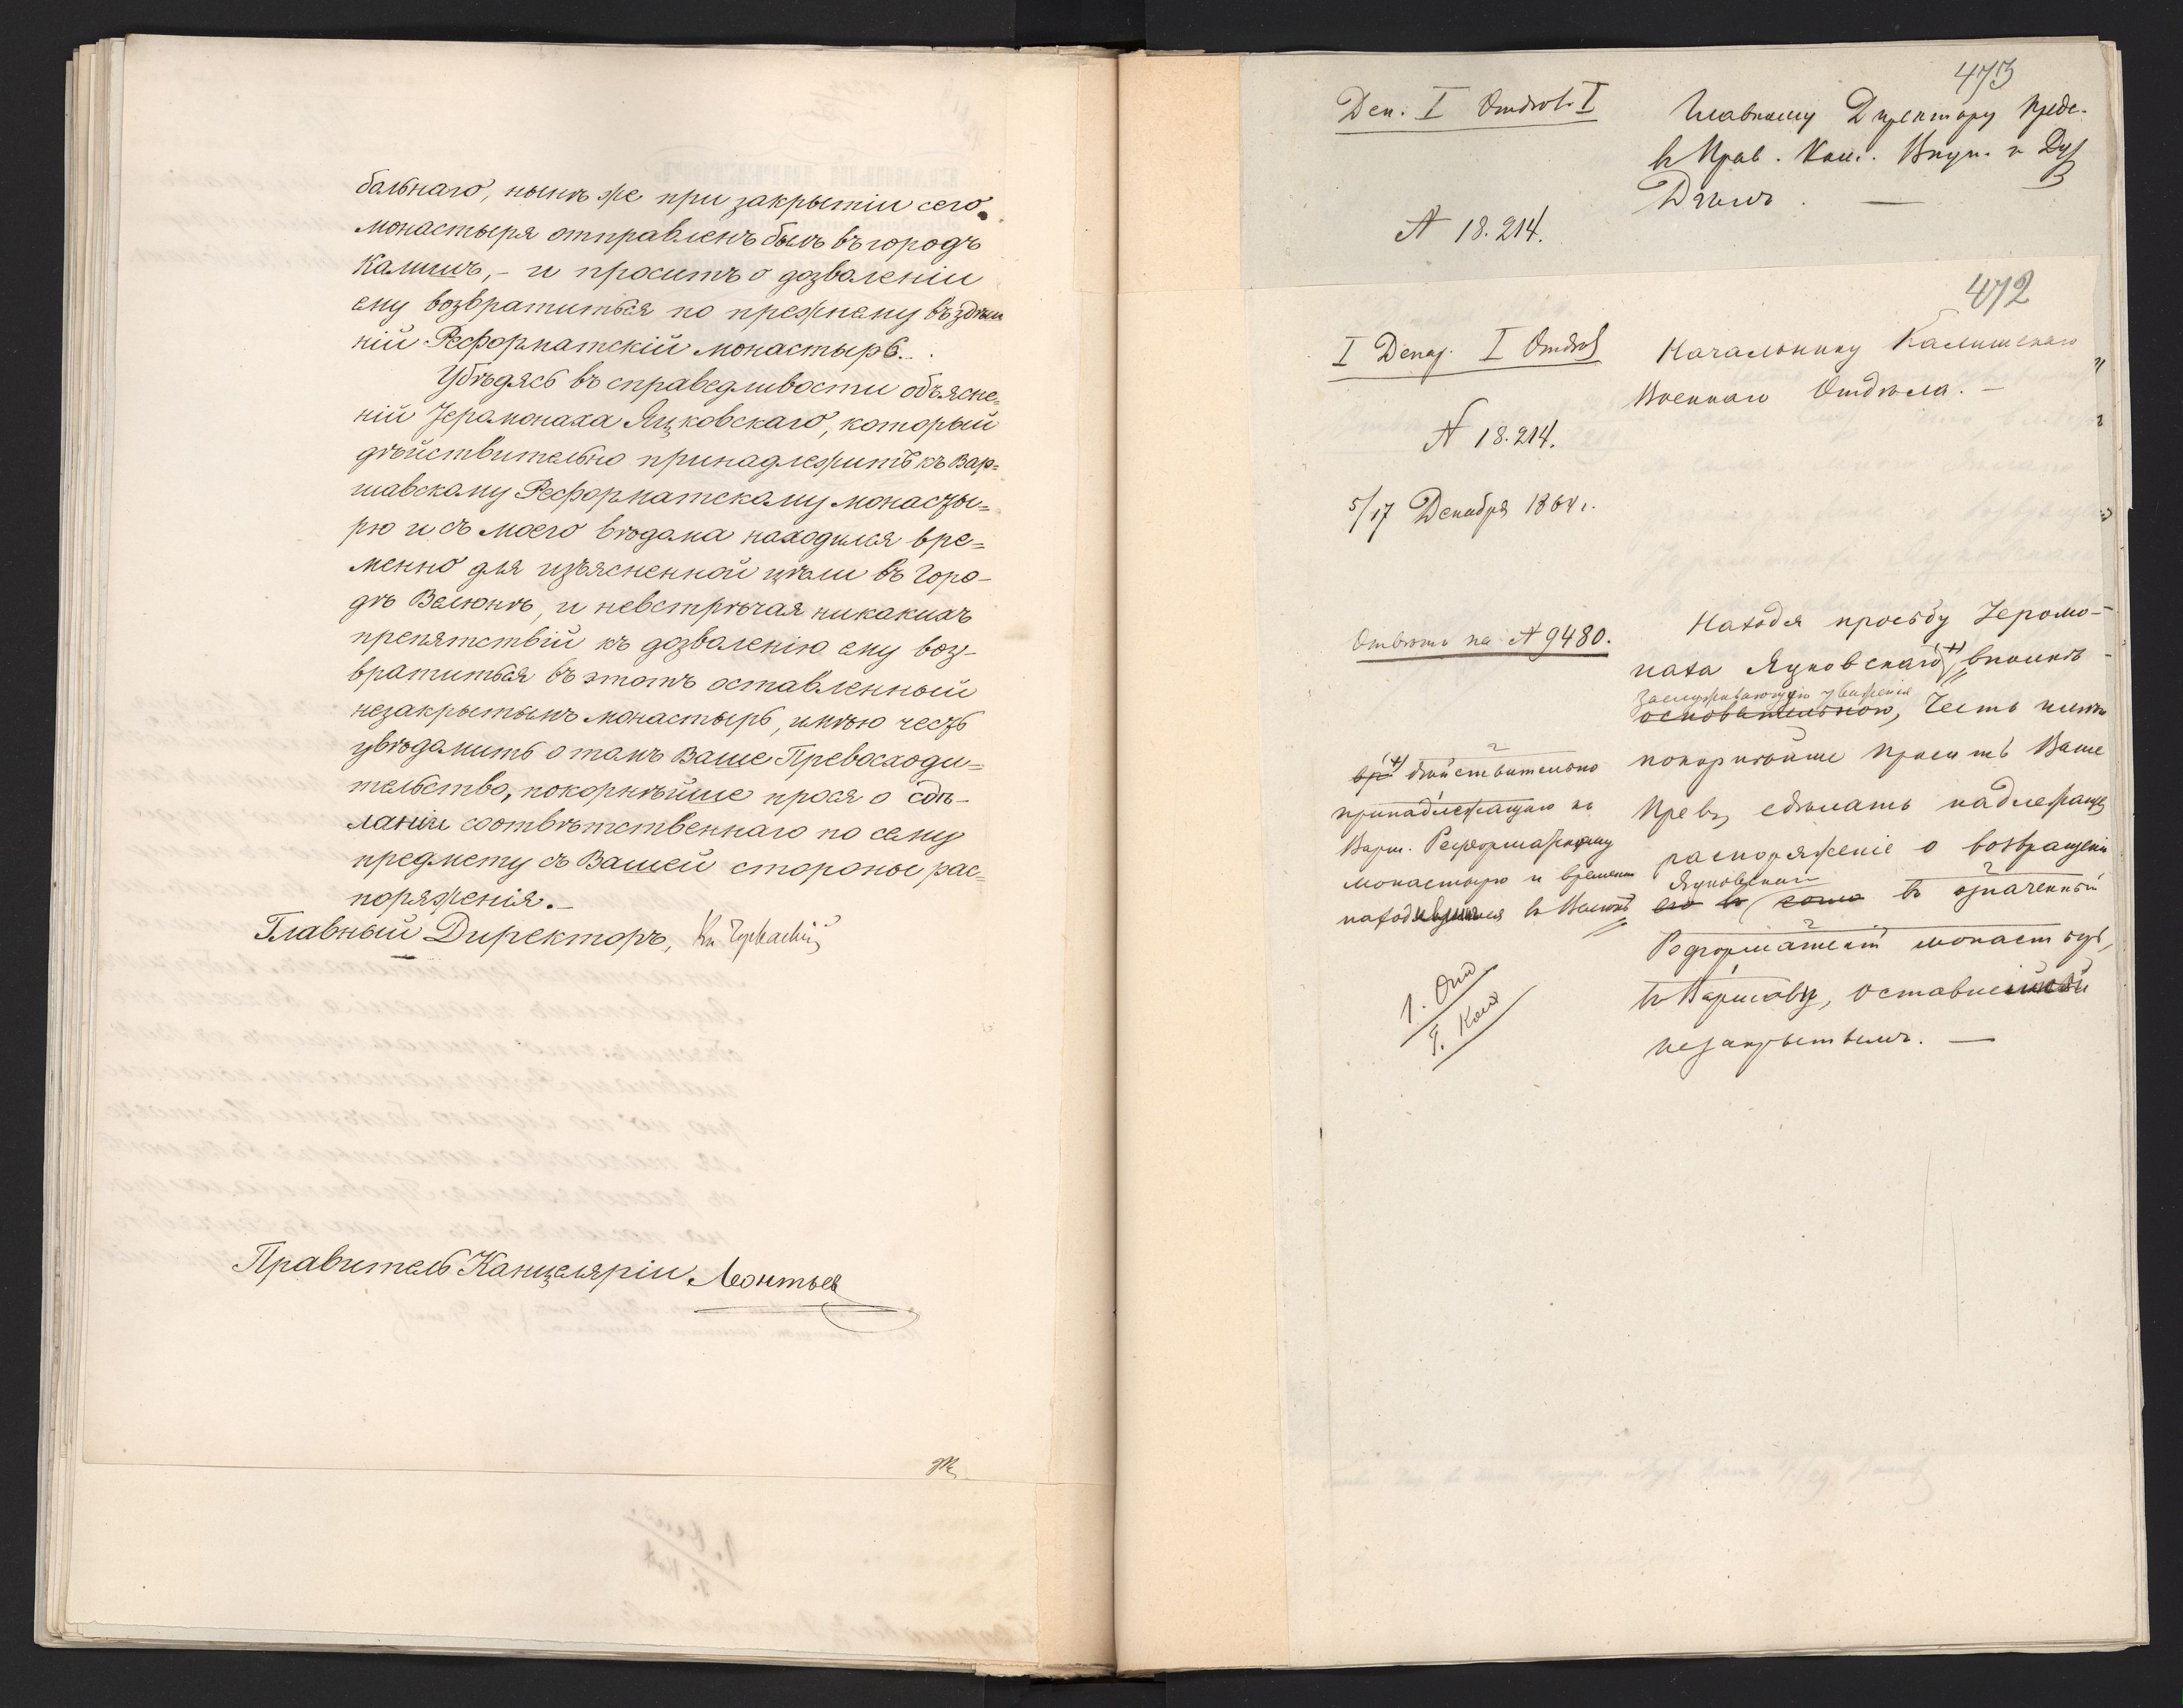 бальнаго, нынѣ же при закрытіи сего
монастыря отправленъ былъ въ городъ
Калишъ, – и проситъ о дозволеніи
ему возвратиться по прежнему въ здѣш
ній Реформатскій монастырь.
Убѣдясь въ справедливости объясне=
ній Іеромонаха Яцковскаго, который
дѣйствительно принадлежитъ къ Вар=
шавскому Реформатскому монасты=
рю и съ моего вѣдома находился вре=
менно для изъясненной цѣли въ горо-
дѣ Велюнѣ, и невстрѣчая никакихъ
препятствій къ дозволенію ему воз-
вратиться въ этотъ оставленный
незакрытымъ монастырь, имѣю честь
увѣдомить о томъ Ваше Превосходи=
тельство, покорнѣйше прося о сдѣ-
ланіи соотвѣтственнаго по сему
предмету съ Вашей стороны рас=
поряженія. –
Главный Директоръ, Кн Черкаскій
Правитель Канцеляріи Леонтьев
473
Деп. I Отдѣл. I
Главному Директору Предс.
в Прав. Ком. Внут. и Дух
Дѣлъ. —
N 18.214.
472
I Депар. I Отдѣл
Начальнику Калишскаго
Военнаго Отдѣла. –
N 18.214.
5/17 Декабря 1864 г.
Отвѣтъ на N 9480.
Находя просьбу Іеромо-
наха Яцковскаго (+) вполнѣ
заслуживающую уваженія
основательною, Честь имѣю
покорнѣйше просить Ваше
Прев. сдѣлать надлежащ
распоряженіе о возвращеніи
Яцковскаго
его в въ означенный
Реформатскій монастырь,
въ Варшавѣ, оставленный
незакрытымъ. —
(+) дѣйствительно
принадлежащаго къ
Варш. Реформатскому
монастырю и временно
находившагося в Велюнѣ